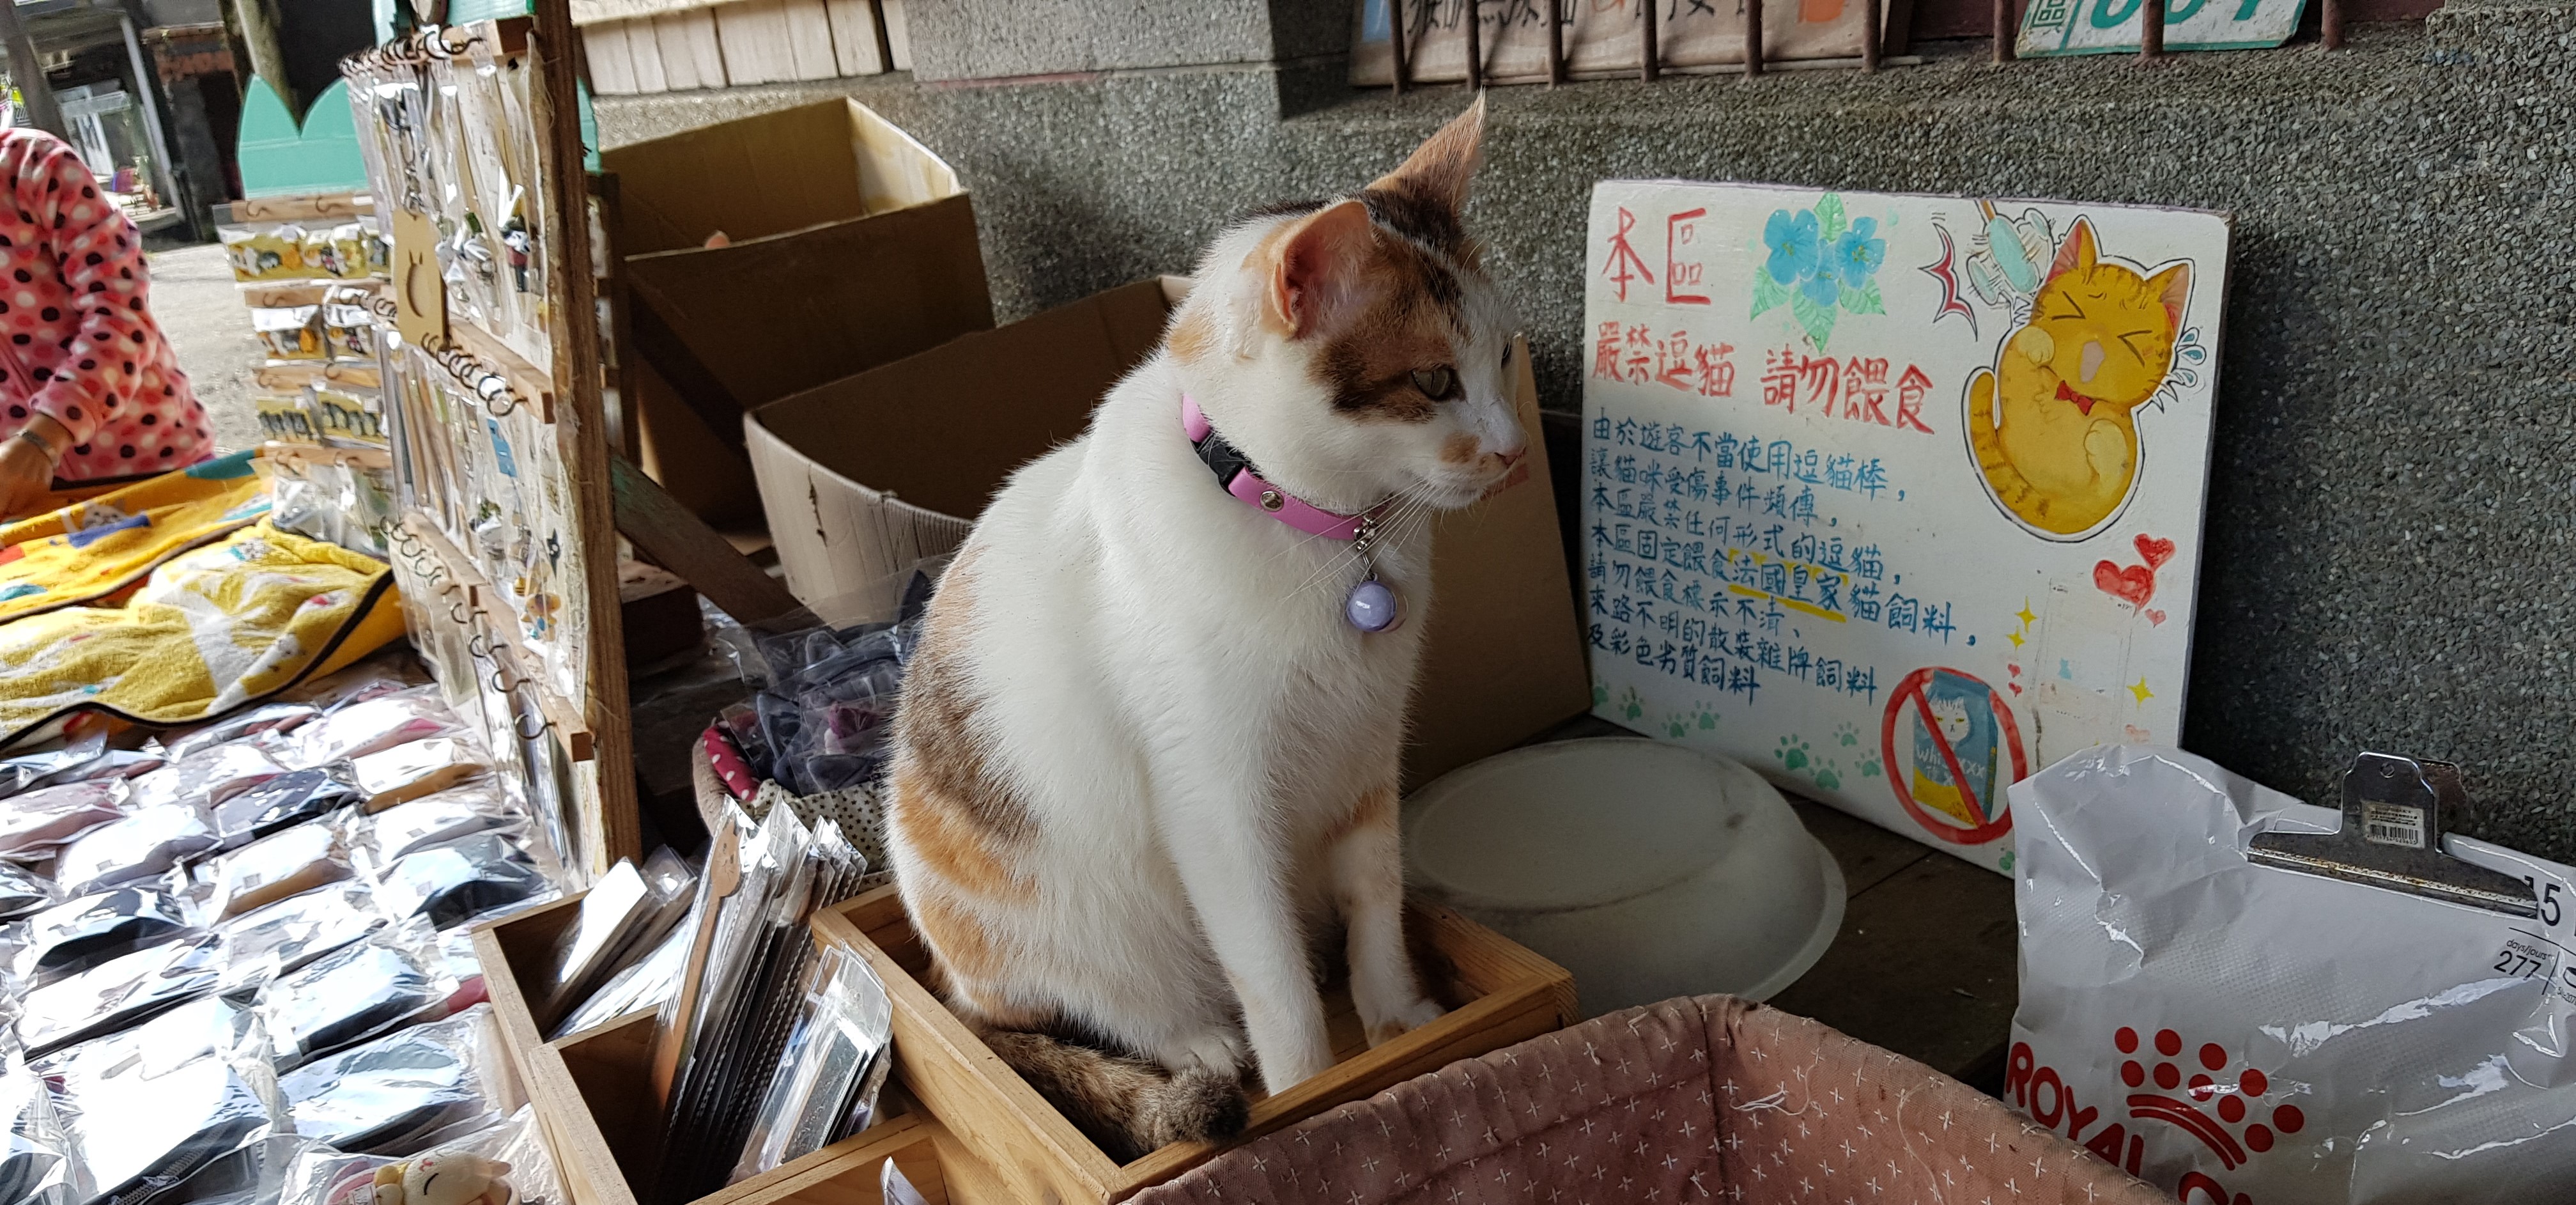 本區
嚴禁逗貓 請勿餵食
由於遊客不當使用逗貓棒，
讓貓咪受傷事件頻傳，
本區嚴禁任何形式的逗貓，
本區固定餵食法國皇家貓飼料，
請勿餵食標示不清、
來路不明的散裝雜牌飼料
及彩色劣質飼料
15
days/jours
277
ROYAL